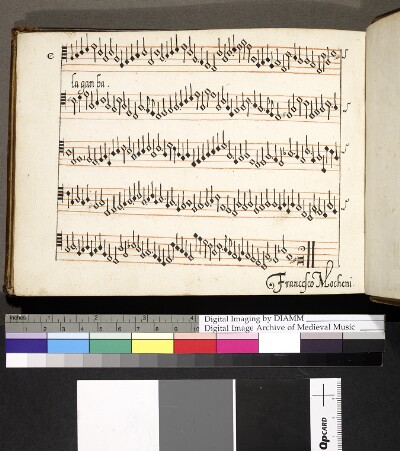 C
la gan ba.
Francesco Mocheni
inches 1 2 3 4
1 2 3 4 5 6 7 8 9 10
Digital Imaging by DIAMM
Digital Image Archive of Medieval Music
QPCARD